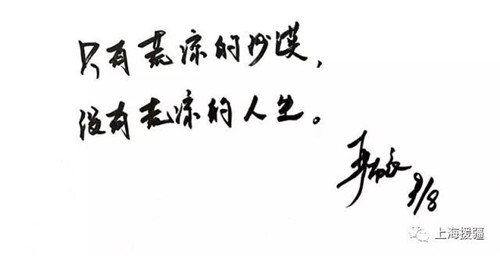 只有荒凉的沙漠，
没有荒凉的人生。
9/8
上海援疆